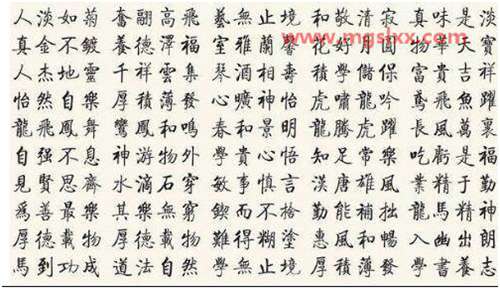 www.mgslxx.com
人淡如菊 奮翮高飛 藝無止境 和敬清寂 真味是淡
真金不鍍 養德澤福 室雅蘭馨 花好月圓 物華天寶
人杰地靈 千祥雲集 琴酒相壽 積學儲寶 富貴吉祥
怡然自樂 厚積薄發 心曠神怡 虎嘯龍吟 鳶飛魚躍
龍飛鳳舞 鸞鳳和鳴 春和景明 龍騰虎躍 長風萬里
自强不息 神游物外 學貴心悟 知足常樂 吃虧是福
見賢思齊 水滴石穿 敏事慎言 漢唐雄風 業精于勤
爲善最樂 其樂無窮 鍥而不捨 勤能補拙 龍馬精神
厚德載物 厚德載物 難得糊塗 惠風和暢 入幽出朗
馬到功成 道法自然 學無止境 厚積薄發 學書養志